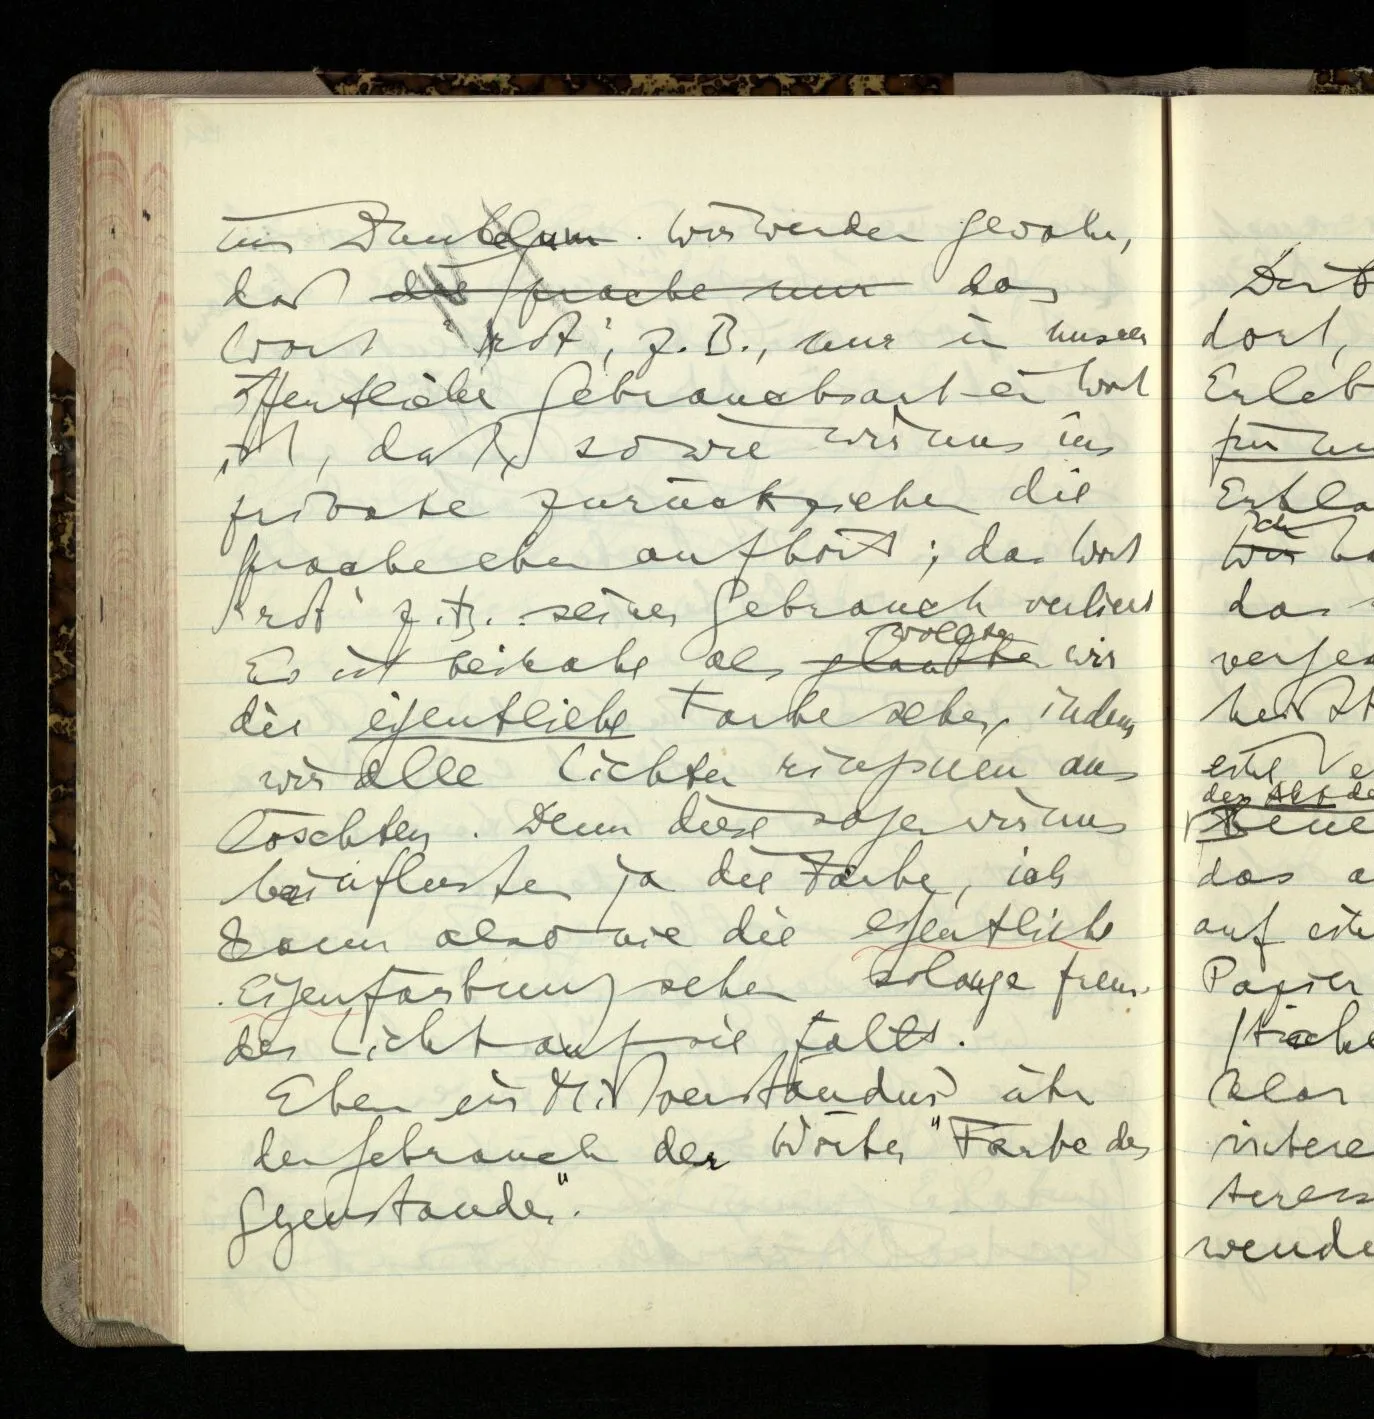 uns Dunkel um. Wir werden gewahr,
daß die Sprache nur das
Wort 'rot', z.B., nur in unserer
öffentliche Gebrauchsart ein Wort
ist, daß, sowie wir uns ins
private zurückziehen die
Sprache eben aufhört; das Wort
'rot' z.B. seinen Gebrauch verliert
Es ist beinahe als glaubten wollten wir
die eigentliche Farbe sehen, indem
wir alle Lichter ringsum aus
löschten. Denn diese sagen wir uns
beinflussten ja die Farbe, ich
kann also nie die eigentliche
Eigenfärbung sehen solange frem-
des Licht auf sie fällt.
Eben ein Mißverständnis über
den Gebrauch der Wörter "Farbe des
Gegenstandes".
dort,
Erleb
für un
das
heißt
eine Ve
das a
auf ein
Papier
klar
intere
wende